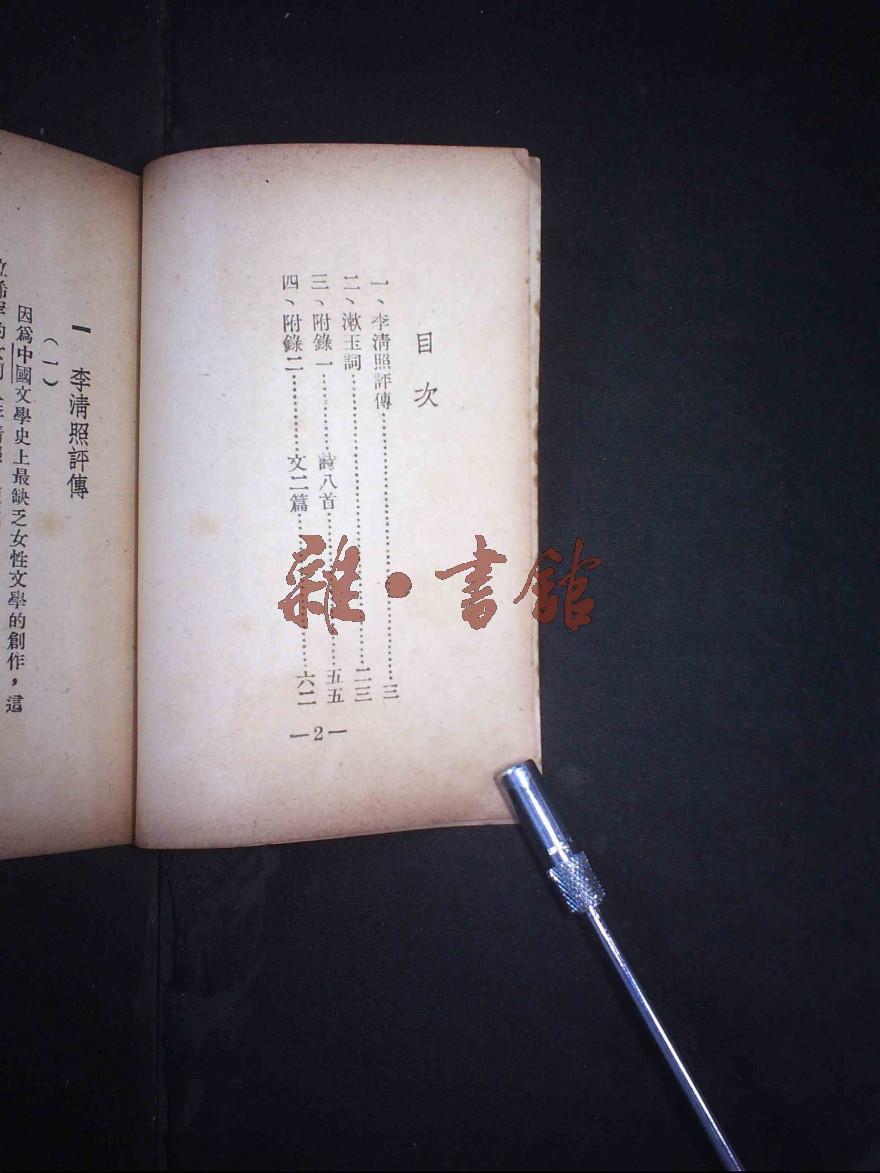 目次
一、李清照評傳……三
二、漱玉詞……二三
三、附錄一……詩八首……五五
四、附錄二……文二篇……六二
—2—
一 李清照評傳
(一)
因爲中國文學史上最缺乏女性文學的創作，這
雜·書館